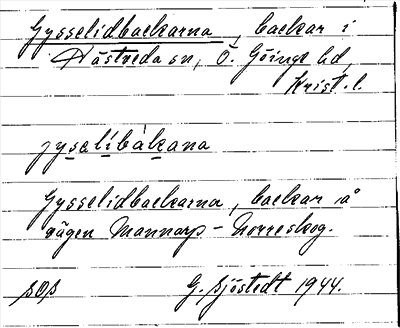 Gysselidbackarna, backar i
Hästveda sn, Ö. Göinge hd,
Krist. l.
jysɛlibàkana
Gysselidbackarna, backar å
vägen Mannarp - Norreskog.
G. Sjöstedt 1944.